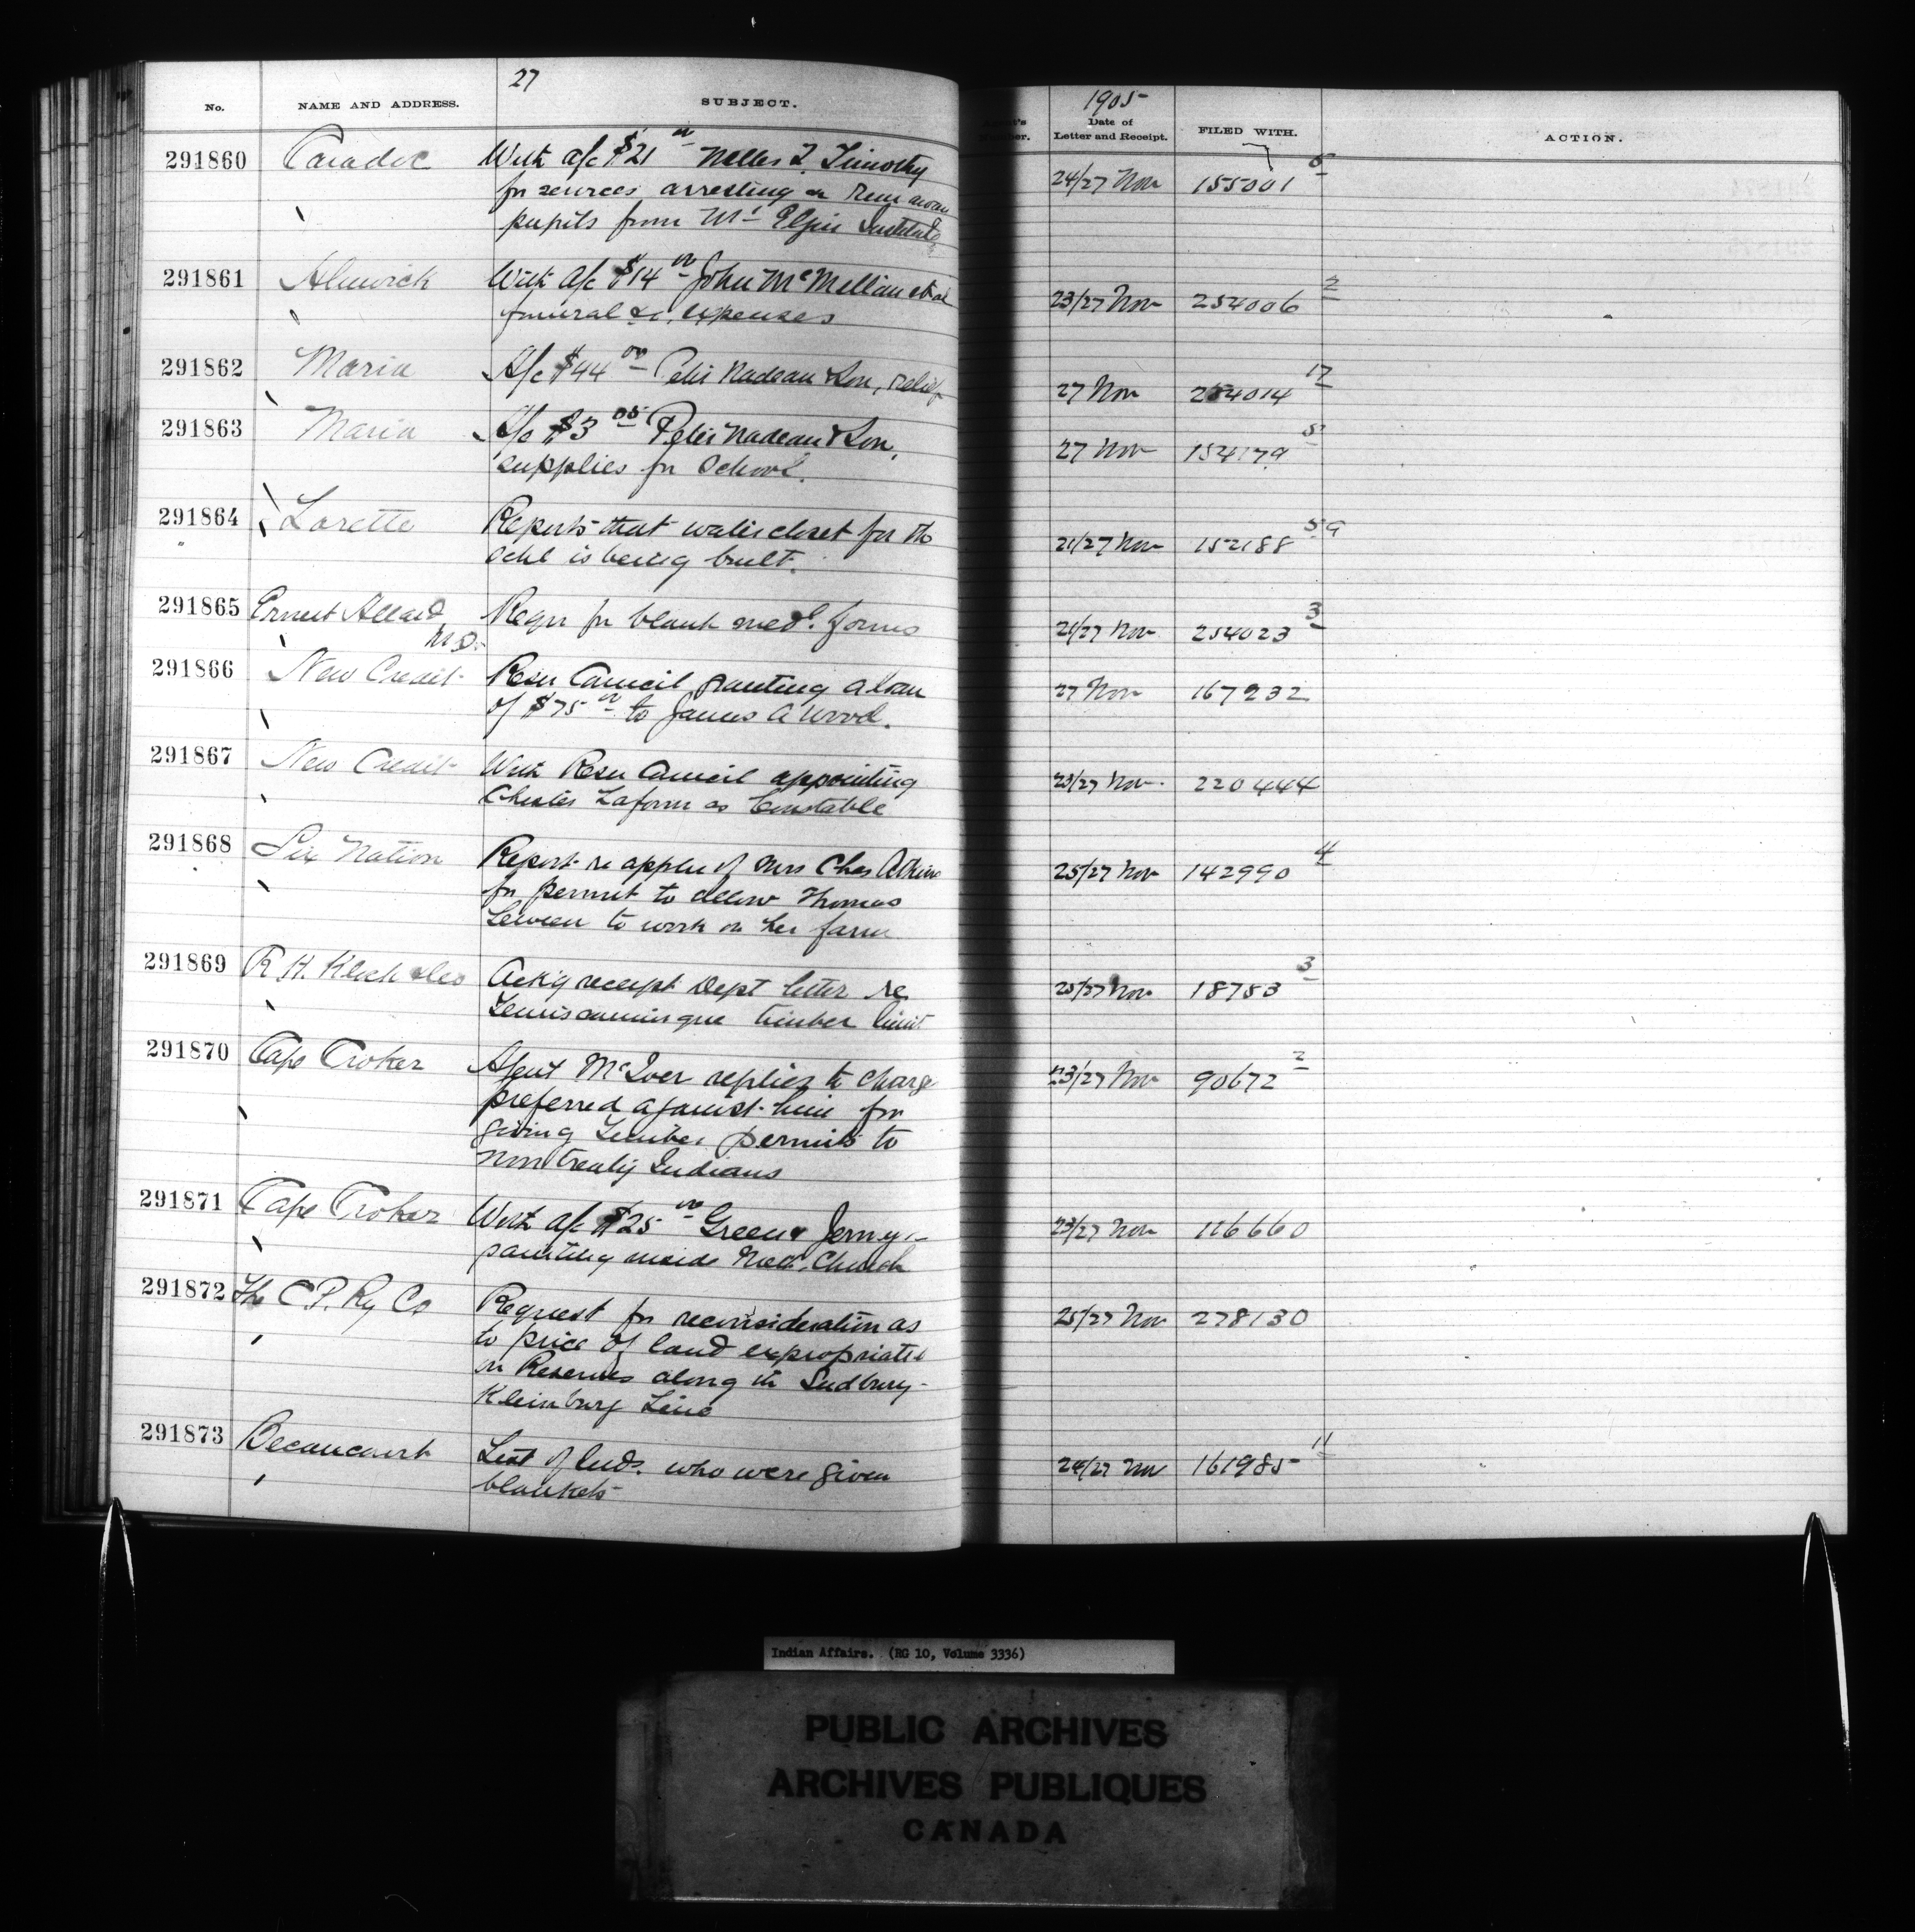 27
1905
No.
NAME AND ADDRESS.
SUBJECT.
Date of
Letter and Receipt.
FILED WITH.
ACTION.
291860 Caradoc With a/c $21 00 Nelles T. Timothy 24/27 Nov 155001 6
for services arresting run away
pupils from Mt Elgin Institute
291861 Alnwick With a/c $14 00 John McMillan 23/27 Nov 254006 2
funeral &c. expenses
291862 Maria A/c $44 00 Peter Nadeau & Son, relief 27 Nov 254014 17
291863 Maria A/c $3 05 Peter Nadeau & Son, 27 Nov 154179
supplies for School.
291864 Lorette Reports that water closet for the 21/27 Nov 152188 59
Schl is being built.
291865 Ernest Allard Requ for blank med. forms 21/27 Nov 254023 3
M.D.
291866 New Credit Resn Council granting a loan 27 Nov 167232
of $75 00 to James A Wood.
291867 New Credit With Resn Council appointing 23/27 Nov 220444
Chester Laform as Constable
291868 Six Nation Report re appln of Mrs Chas Atkins 25/27 Nov 142990 4
for permit to allow Thomas
to work on her farm
291869 R. H. Ackg receipt Dept letter re 25/27 Nov 18753 3
Temiscamingue timber limit
291870 Cape Croker Agent McIver replies to charge 23/27 Nov 90672 2
preferred against him for
giving timber permits to
non treaty Indians
291871 Cape Croker With a/c $25 00 Green & 23/27 Nov 116660
painting inside Church
291872 The C P. Ry Co Request for reconsideration as 25/27 Nov 278130
to price of land expropriated
on Reserves along the Sudbury-
Kleinburg Line
291873 Becancourt List of Inds. who were given 24/27 Nov 161985 11
blankets
Indian Affairs. (RG 10, Volume 3336)
PUBLIC ARCHIVES
ARCHIVES PUBLIQUES
CANADA